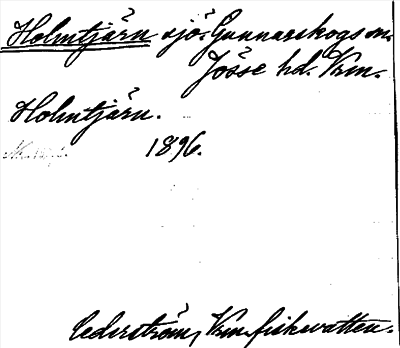 Holmtjärn sjö. Gunnarskogs sn.
Jösse hd. Vrm.
Holmtjärn.
1896.
Cederström, Vrm fiskevatten.